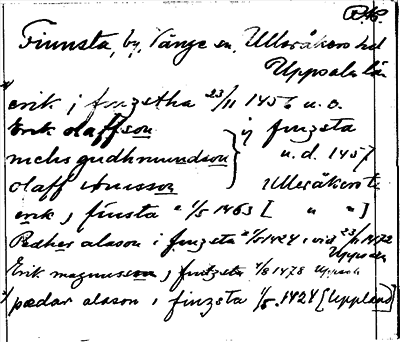 Finnsta, by, Vänge sn, Ulleråkers hd
Uppsala län
erik j finzstha 23/11 1456 u. o.
Erik olaffson
niclis gudhmundson } ij finzsta u.d. 1457
olaff
erik j finsta 1/5 1463 [ " " ]
Pedher olason i finzsta 1/5 1424 vid 23/11 1472
Uppsala
Erik magnusson j finzsta 4/8 1478 Uppsala
pædar olason i finzsta 1/5 1424 [Uppland]